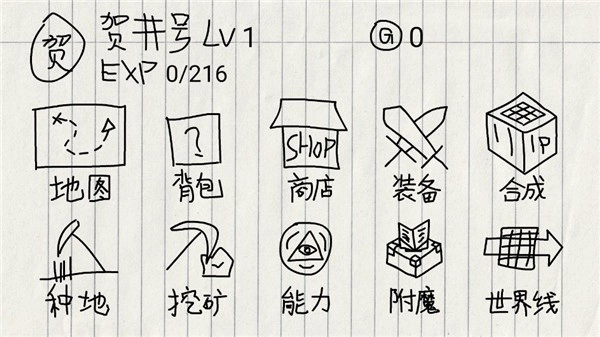 贺
贺井号 LV 1
G 0
EXP 0/216
?
SHOP
地图 背包 商店 装备 合成
种地 挖矿 能力 附魔 世界线